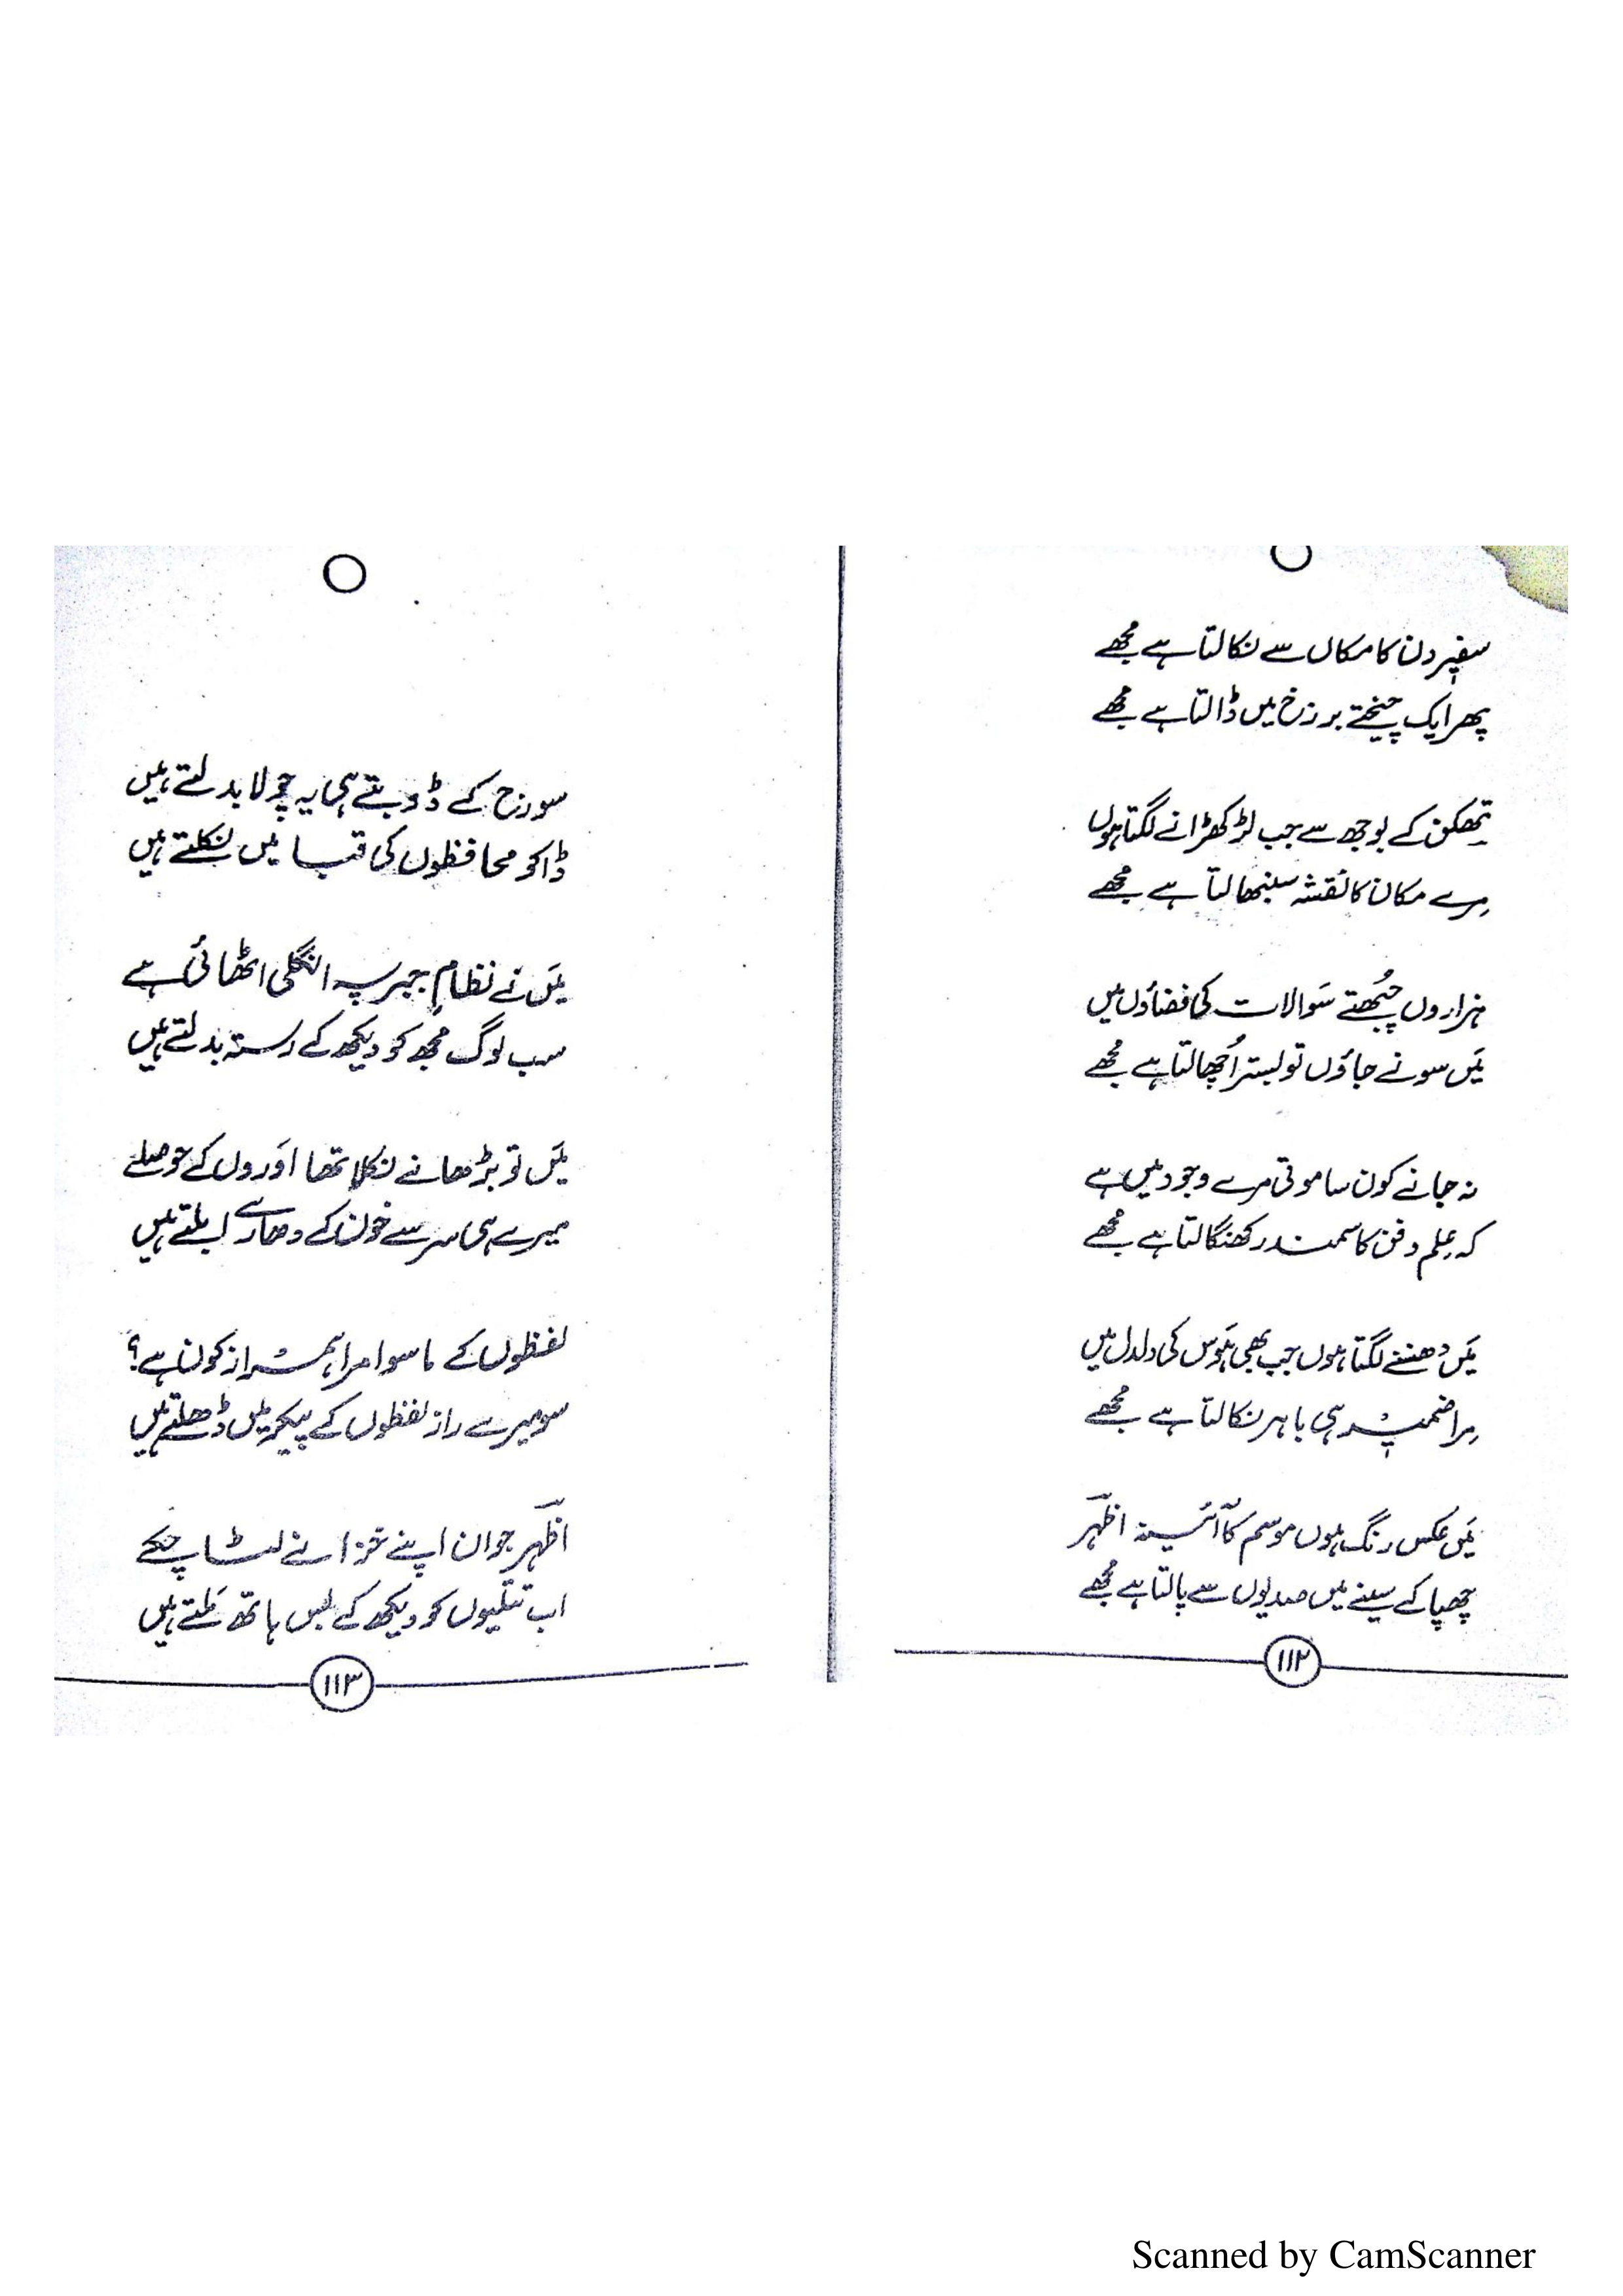 سفیر دن کا مکاں سے نکالتا ہے مُجھے
پھر ایک چیختے برزخ میں ڈالتا ہے مُجھے
تھکن کے بوجھ سے جب لڑکھڑانے لگتا ہوں
مِرے مکان کا نقشہ سنبھالتا ہے مُجھے
ہزاروں چُبھتے سَوالات کی فضاؤں میں
مَیں سونے جاؤں تو بستر اُچھالتا ہے مُجھے
نہ جانے کون سا موتی مرے وجود میں ہے
کہ عِلم و فن کا سمندر کھنگالتا ہے مُجھے
مَیں دھنسنے لگتا ہوں جب بھی ہَوس کی دلدل میں
مِرا ضمیر ہی باہر نکالتا ہے مُجھے
مَیں عکس رنگ ہوں موسم کا آئینہ اظہَر
چھپا کے سینے میں صدیوں سے پالتا ہے مُجھے
۱۱۲
سورج کے ڈوبتے ہی یہ چولا بدلتے ہیں
ڈاکو محافظوں کی قبا میں نکلتے ہیں
مَیں نے نظامِ جبر پہ انگلی اٹھائی ہے
سب لوگ مجھ کو دیکھ کے رستہ بدلتے ہیں
مَیں تو بڑھانے نکلا تھا اَوروں کے حوصلے
میرے ہی سر سے خون کے دھارے ابلتے ہیں
لفظوں کے ماسوا مرا ہمراز کون ہے؟
سو میرے راز لفظوں کے پیکر میں ڈھلتے ہیں
اظہَر جوان اپنے خزانے لٹا چکے
اب تتلیوں کو دیکھ کے بس ہاتھ مَلتے ہیں
۱۱۳
Scanned by CamScanner